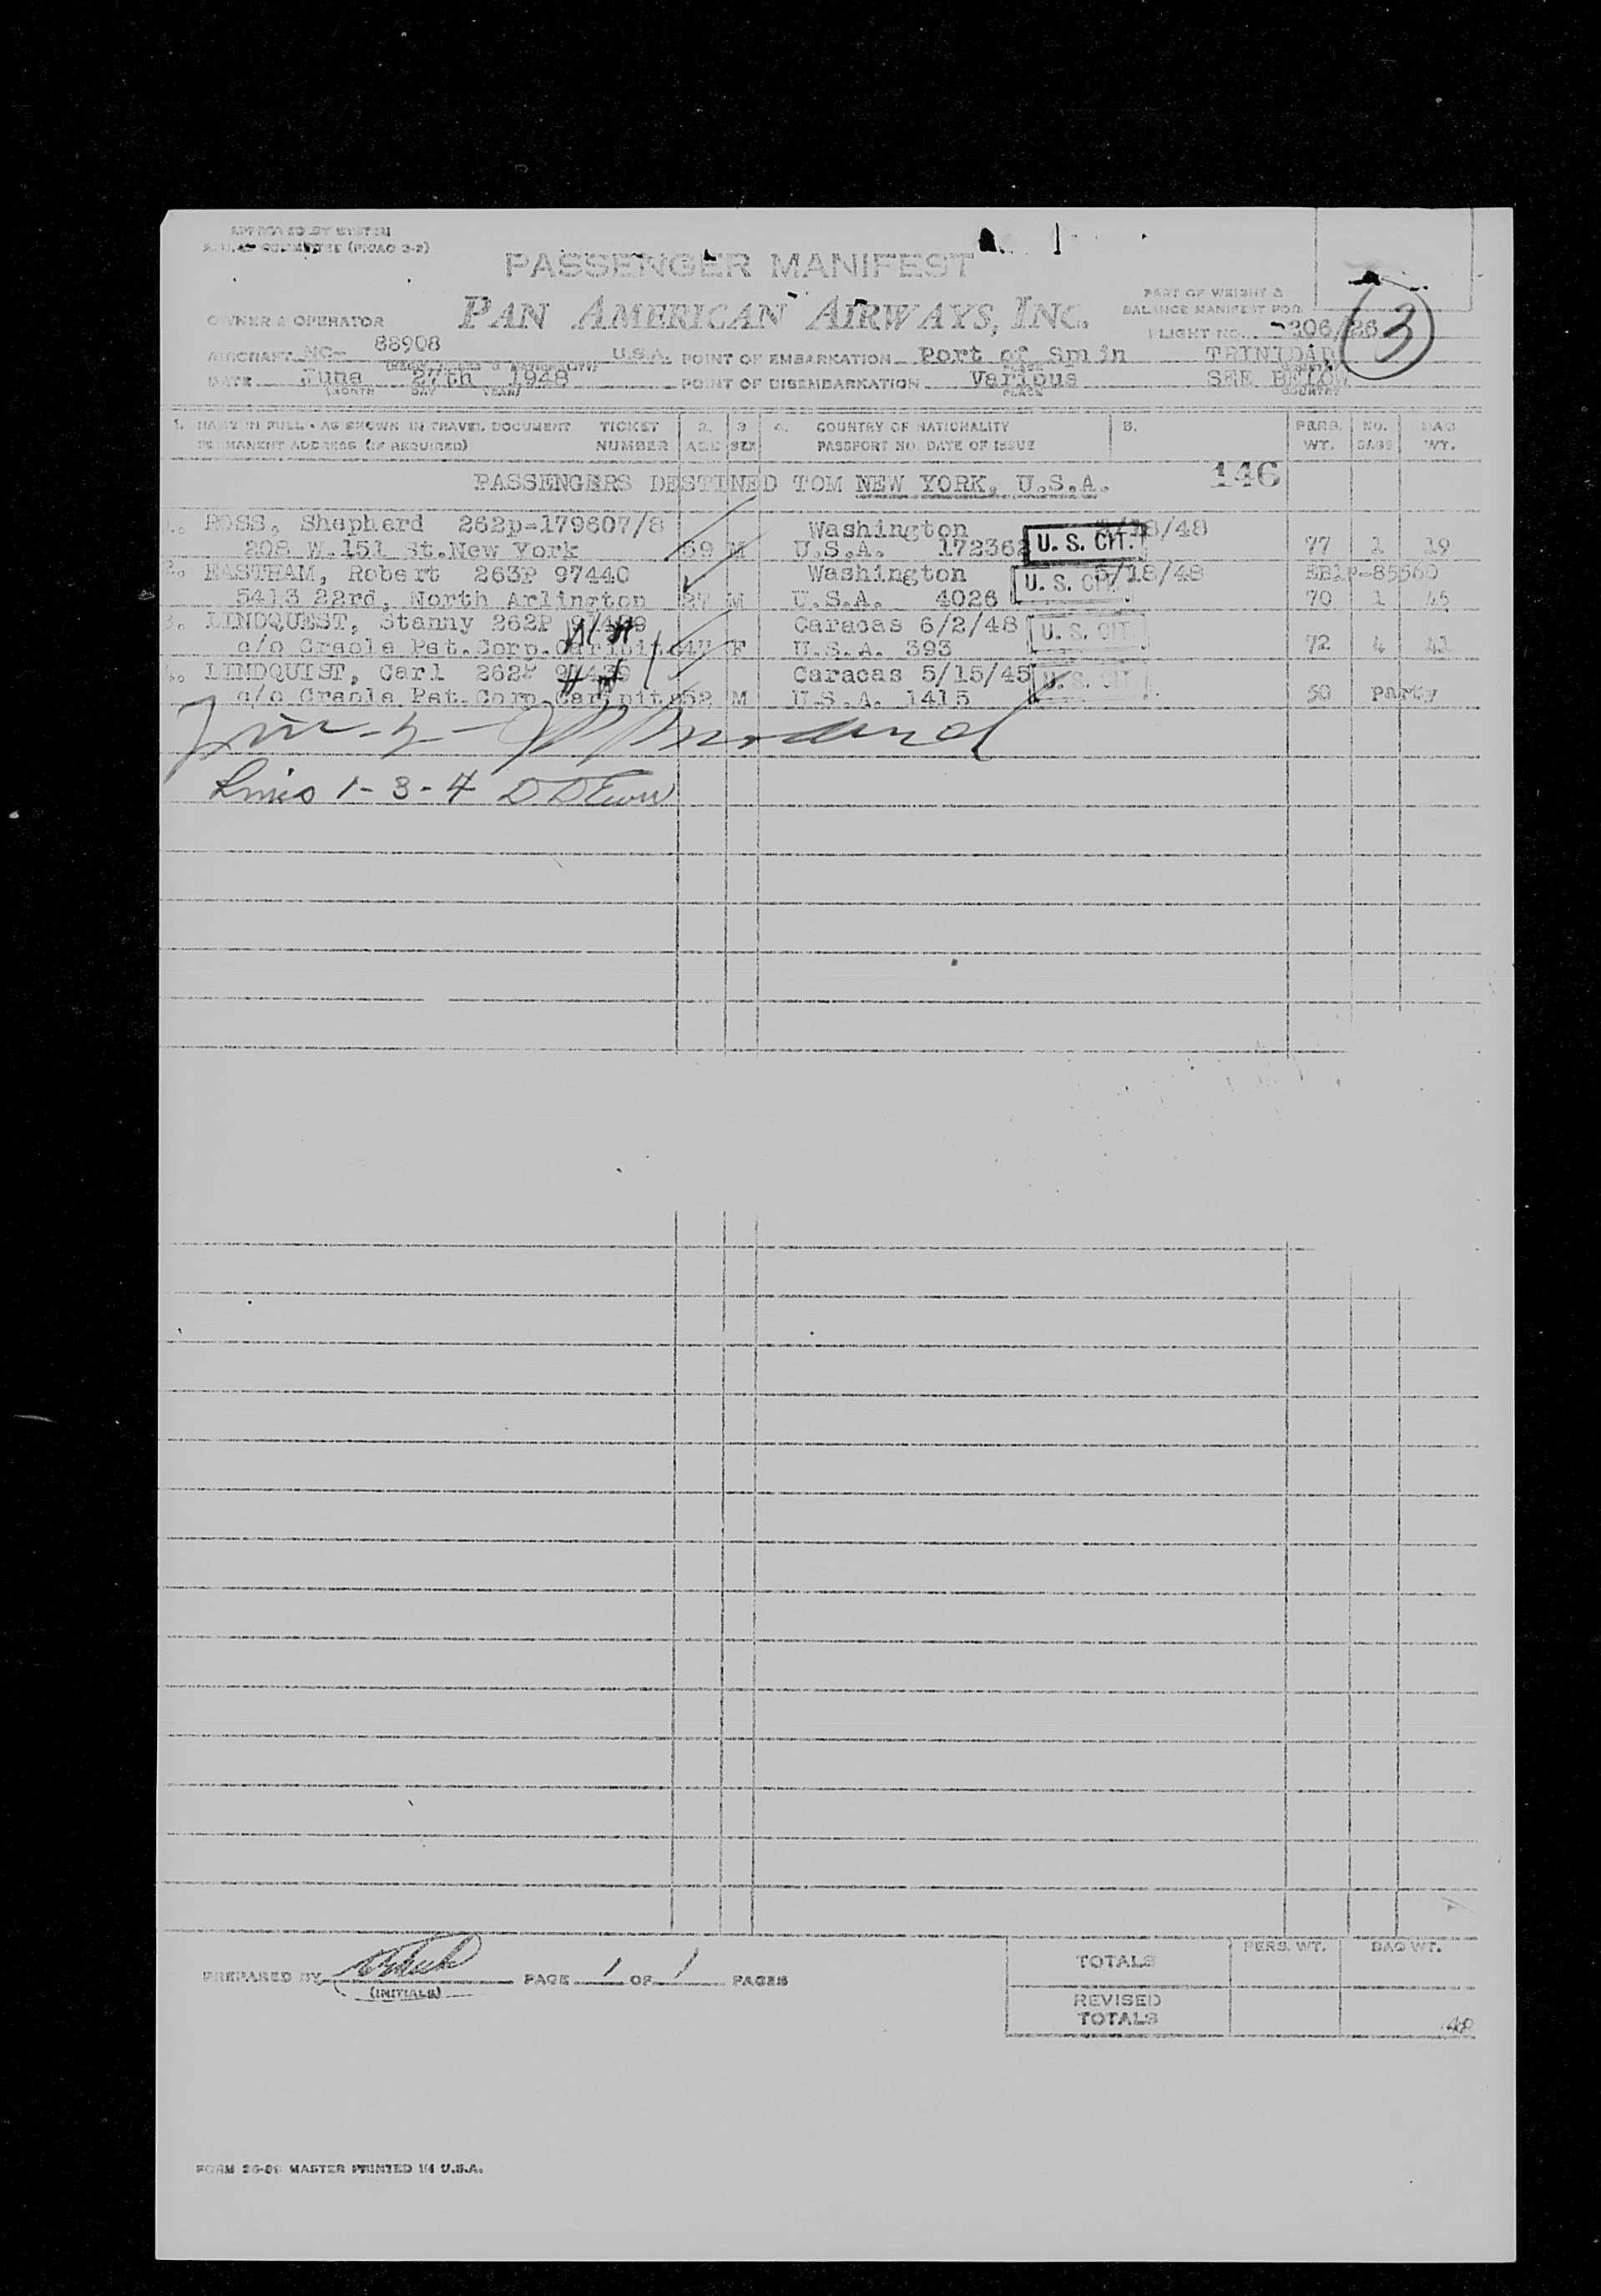 APPROVED BY SYSTEM
PASSENGER MANIFEST
PAN AMERICAN AIRWAYS, INC.
PART OF WEIGHT &
BALANCE MANIFEST FOR
OWNER & OPERATOR
FLIGHT NO. 206/26 3
AIRCRAFT NC- 88908 U.S.A. POINT OF EMBARKATION Port of Smin TRINIDAD
DATE June 27th 1948 POINT OF DISEMBARKATION Various SEE BELOW
(MONTH DAY YEAR) PLACE COUNTRY
1. NAME IN FULL - AS SHOWN IN TRAVEL DOCUMENT TICKET 2. 3 4. COUNTRY OF NATIONALITY 5. PERS. NO. BAG
PERMANENT ADDRESS (IF REQUIRED) NUMBER AGE SEX PASSPORT NO. DATE OF ISSUE WT. BAGS WT.
PASSENGERS DESTINED TOM NEW YORK, U.S.A. 146
1. ROSS, Shephard 262p-179607/8 Washington /18/48
208 W.151 St.New York 59 M U.S.A. 172362 U. S. CIT. 77 1 19
2. EASTHAM, Robert 263P 97440 Washington 5/18/48 EB1P-85560
5413 22rd, North Arlington 27 M U.S.A. 4026 U. S. CIT. 70 1 45
3. LINDQUEST, Stanny 262P 97439 Caracas 6/2/48 U. S. CIT.
c/o Creole Pet.Corp. 47 F U.S.A. 393 72 4 41
4. LINDQUIST, Carl 262P Caracas 5/15/45 U. S. CIT.
c/o Creole Pet.Corp. 52 M U.S.A. 1415 50 party
Lines 1-3-4
PREPARED BY PAGE 1 OF 1 PAGES
(INITIALS)
TOTALS PERS. WT. BAG WT.
REVISED
TOTALS
FORM MASTER PRINTED IN U.S.A.